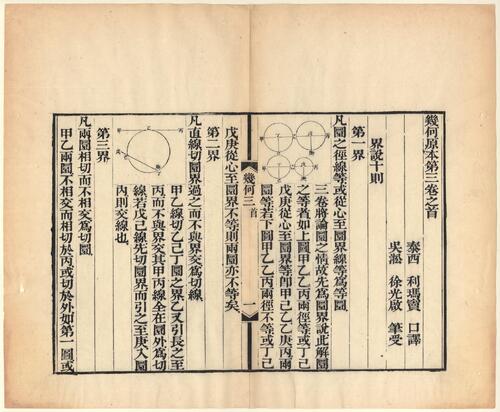 幾何原本第三卷之首
泰西 利瑪竇 口譯
吳淞 徐光啟 筆受
界說十則
第一界
凡圜之徑線等或從心至圜界線等為等圜
三卷將論圜之情故先為圜界說此解圜
之等者如上圖甲乙乙丙兩徑等或丁己
戊庚從心至圜界等即甲己乙乙庚丙兩
圜等若下圖甲乙乙丙兩徑不等或丁己
戊庚從心至圜界不等則兩圜亦不等矣
幾何三 首
一
第二界
凡直線切圜界過之而不與界交為切線
甲乙線切乙己丁圜之界乙又引長之至
丙而不與界交其甲丙線全在圜外為切
線若戊己線先切圜界而引之至庚入圜
內則交線也
第三界
凡兩圜相切而不相交為切圜
甲乙兩圜不相交而相切於丙或切於外如第一圖或